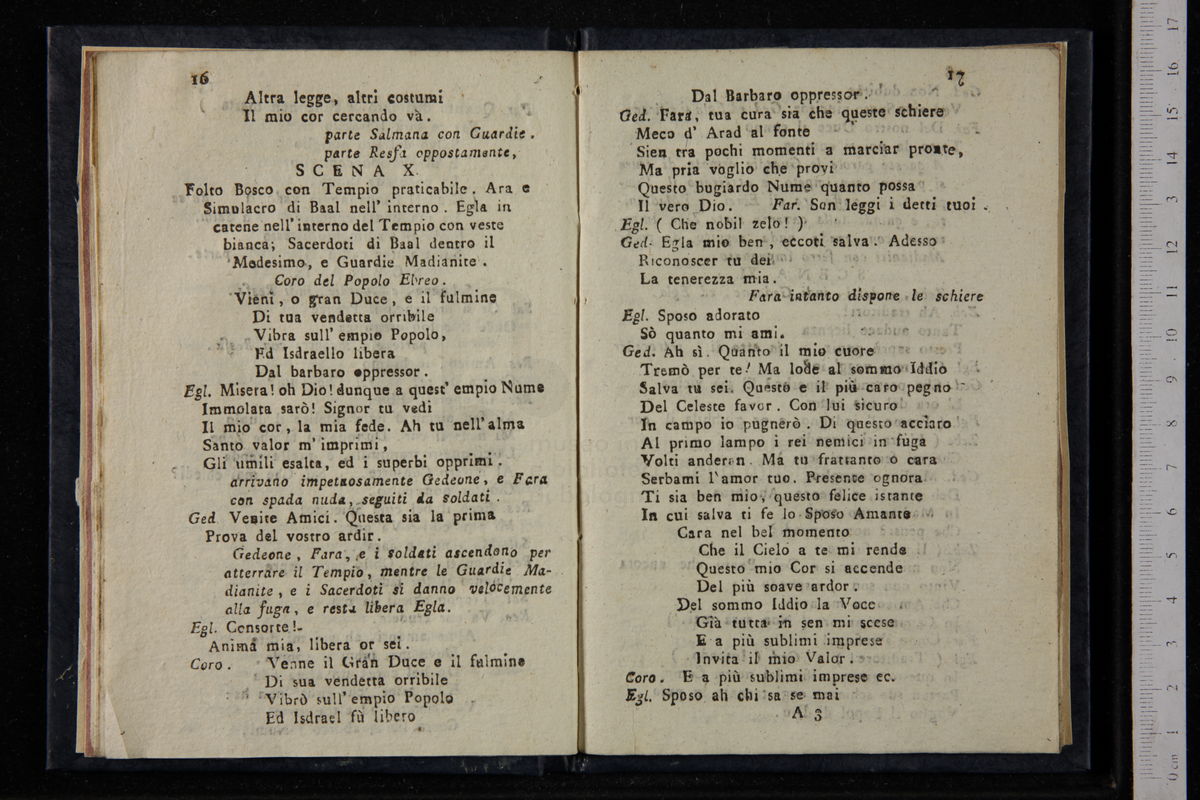 16
Altra legge, altri costumi
Il mio cor cercando và.
parte Salmana con Guardie.
parte Resfa oppostamente,
SCENA X.
Folto Bosco con Tempio praticabile. Ara e
Simulacro di Baal nell' interno. Egla in
catene nell' interno del Tempio con veste
bianca; Sacerdoti di Baal dentro il
Medesimo, e Guardie Madianite.
Coro del Popolo Ebreo.
Vieni, o gran Duce, e il fulmine
Di tua vendetta orribile
Vibra sull' empio Popolo,
Ed Isdraello libera
Dal barbaro oppressor.
Egl. Misera! oh Dio! dunque a quest' empio Nume
Immolata sarò! Signor tu vedi
Il mio cor, la mia fede. Ah tu nell' alma
Santo valor m' imprimi,
Gli umili esalta, ed i superbi opprimi.
arrivano impetuosamente Gedeone, e Fara
con spada nuda, seguiti da soldati.
Ged. Venite Amici. Questa sia la prima
Prova del vostro ardir.
Gedeone, Fara, e i soldati ascendono per
atterrare il Tempio, mentre le Guardie Ma-
dianite, e i Sacerdoti si danno velocemente
alla fuga, e resta libera Egla.
Egl. Consorte!-
Anima mia, libera or sei.
Coro. Venne il Gran Duce e il fulmine
Di sua vendetta orribile
Vibrò sull' empio Popolo
Ed Isdrael fù libero
17
Dal Barbaro oppressor.
Ged. Fara, tua cura sia che queste schiere
Meco d' Arad al fonte
Sien tra pochi momenti a marciar pronte,
Ma pria voglio che provi
Questo bugiardo Nume quanto possa
Il vero Dio. Far. Son leggi i detti tuoi.
Egl. ( Che nobil zelo! )
Ged. Egla mio ben, eccoti salva. Adesso
Riconoscer tu dei
La tenerezza mia.
Fara intanto dispone le schiere
Egl. Sposo adorato
Sò quanto mi ami.
Ged. Ah sì. Quanto il mio cuore
Tremò per te! Ma lode al sommo Iddio
Salva tu sei. Questo e il più caro pegno
Del Celeste favor. Con lui sicuro
In campo io pugnerò. Di questo acciaro
Al primo lampo i rei nemici in fuga
Volti anderan. Ma tu frattanto o cara
Serbami l'amor tuo. Presente ognora
Ti sia ben mio, questo felice istante
In cui salva ti fe lo Sposo Amante
Cara nel bel momento
Che il Cielo a te mi rende
Questo mio Cor si accende
Del più soave ardor.
Del sommo Iddio la Voce
Già tutta in sen mi scese
E a più sublimi imprese
Invita il mio Valor.
Coro. E a più sublimi imprese ec.
Egl. Sposo ah chi sa se mai
A 3